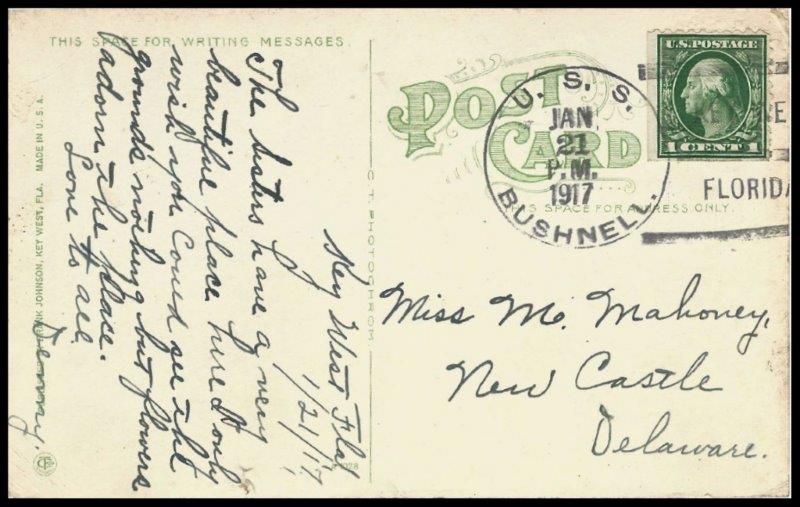 THIS SPACE FOR WRITING MESSAGES.
Key West Fla
1/21/17,
The Sisters have a very
beautiful place here I only
wish you could see the
grounds nothing but flowers
adorn the place.
Love to all
FRANK JOHNSON, KEY WEST, FLA. MADE IN U.S.A.
C. T. PHOTOCHROM
POST
CARD
THIS SPACE FOR ADDRESS ONLY
U. S. S.
JAN
21
P.M.
1917
BUSHNELL.
U.S. POSTAGE
1 CENT 1
FLORIDA
Miss M. Mahoney,
New Castle
Delaware.